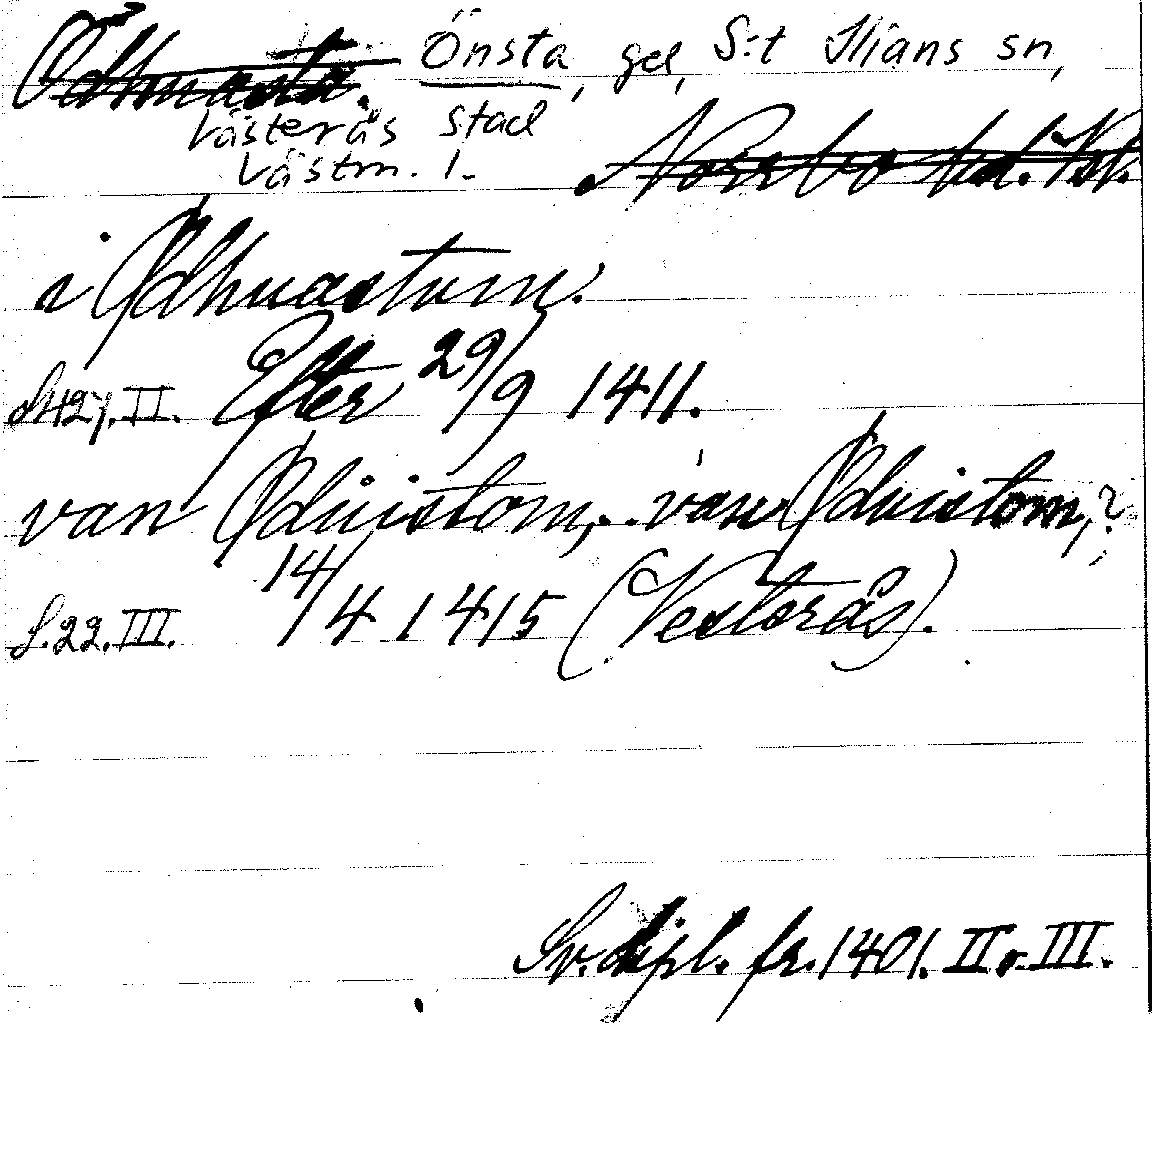 Ödhuasta. Önsta, gd, S:t Ilians sn,
Västerås stad
Västm. l.
Norrbo hd. Vstm.
i Ødhuastum.
S.427.II. Efter 29/9 1411.
van Ødhuistom, van Ødhuistom,?
S.22.III. 14/4 1415 (Vesterås).
Sv. dipl. fr. 1401. II o. III.